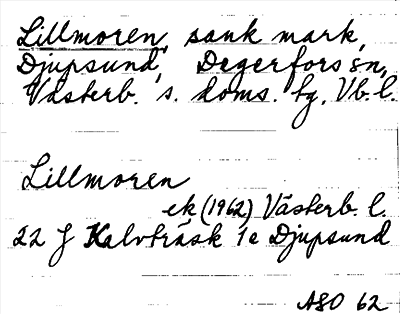 Lillmoren, sank mark,
Djupsund, Degerfors sn,
Västerb. s. doms. tg, Vb. l.
Lillmoren
ek (1962) Västerb. l.
22 J Kalvträsk 1e Djupsund
ASO 62